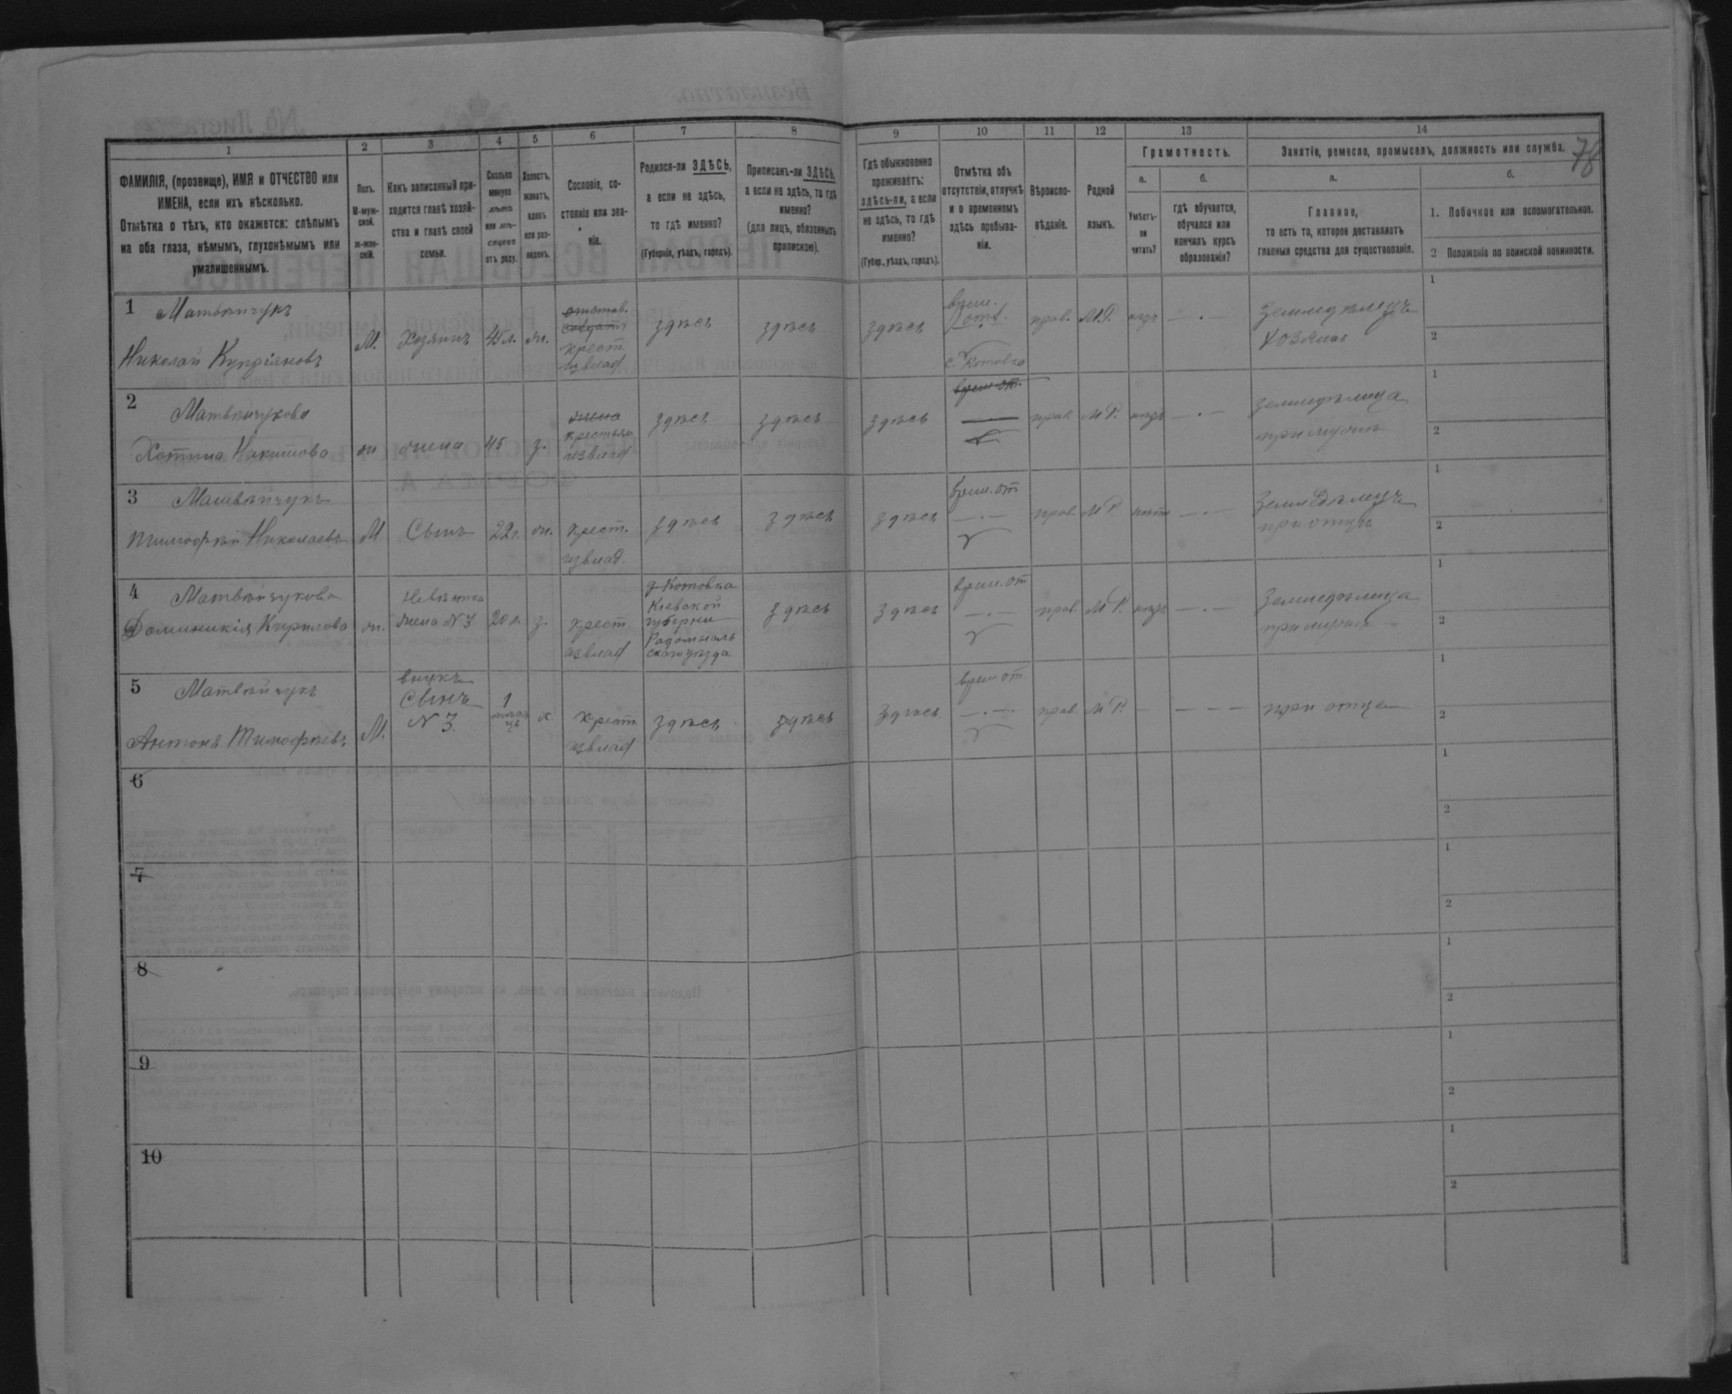 78
1 2 3 4 5 6 7 8 9 10 11 12 13 14
ФАМИЛІЯ, (прозвище), ИМЯ и ОТЧЕСТВО или
ИМЕНА, если ихъ нѣсколько.
Отмѣтка о тѣхъ, кто окажется: слѣпымъ
на оба глаза, нѣмымъ, глухонѣмымъ или
умалишеннымъ.
Полъ.
М-муж-
ской.
Ж-жен-
скій.
Какъ записанный при-
ходится главѣ хозяй-
ства и главѣ своей
семьи.
Сколько
минуло
лѣтъ
или мѣ-
сяцевъ
отъ роду.
Холостъ,
женатъ,
вдовъ
или раз-
веденъ.
Сословіе, со-
стояніе или зва-
ніе.
Родился-ли ЗДѢСЬ,
а если не здѣсь,
то гдѣ именно?
(Губернія, уѣздъ, городъ).
Приписанъ-ли ЗДѢСЬ,
а если не здѣсь, то гдѣ
именно?
(для лицъ, обязанныхъ
припискою).
Гдѣ обыкновенно
проживаетъ:
здѣсь-ли, а если
не здѣсь, то гдѣ
именно?
(Губер., уѣздъ, городъ).
Отмѣтка объ
отсутствіи, отлучкѣ
и о временномъ
здѣсь пребыва-
ніи.
Вѣроиспо-
вѣданіе.
Родной
языкъ.
Грамотность.
а.
Умѣетъ-
ли
читать?
б.
гдѣ обучается,
обучался или
кончилъ курсъ
образованія?
Занятіе, ремесло, промыселъ, должность или служба.
а.
Главное,
то есть то, которое доставляетъ
главныя средства для существованія.
б.
1. Побочное или вспомогательное.
2 Положеніе по воинской повинности.
1 Матвійчукъ
Николай Купріяновъ
М.
Хозяинъ
45 л.
жн.
крест.
здѣсь
здѣсь
здѣсь
с. Котовка
прав.
М.Р.
Земледѣлецъ
хозяинъ
1
2
2 Матвійчукова
жена
45
з.
здѣсь
здѣсь
здѣсь
прав
М Р.
земледѣлица
при мужѣ
1
2
3 Матвійчукъ
Тимофѣй Николаевъ
М
Сынъ
22 г.
жн.
крест.
здѣсь
здѣсь
здѣсь
врем. от
прав
М Р.
Земледѣлецъ
при отцѣ
1
2
4 Матвійчукова
Доминикія Кирилова
жн.
невѣстка
жена №3
20 л.
з.
крест
д Котовка
Кіевской
губерніи
Радомысль
скаго уѣзда
здѣсь
здѣсь
врем. от
прав
М Р.
Земледѣлица
при мужѣ
1
2
5 Матвійчукъ
Антонъ Тимофѣевъ
М.
внукъ
Сынъ
№ 3.
1
х
крест
здѣсь
здѣсь
здѣсь
врем от
прав
М Р.
при отце
1
2
6
1
2
7
1
2
8
1
2
9
1
2
10
1
2